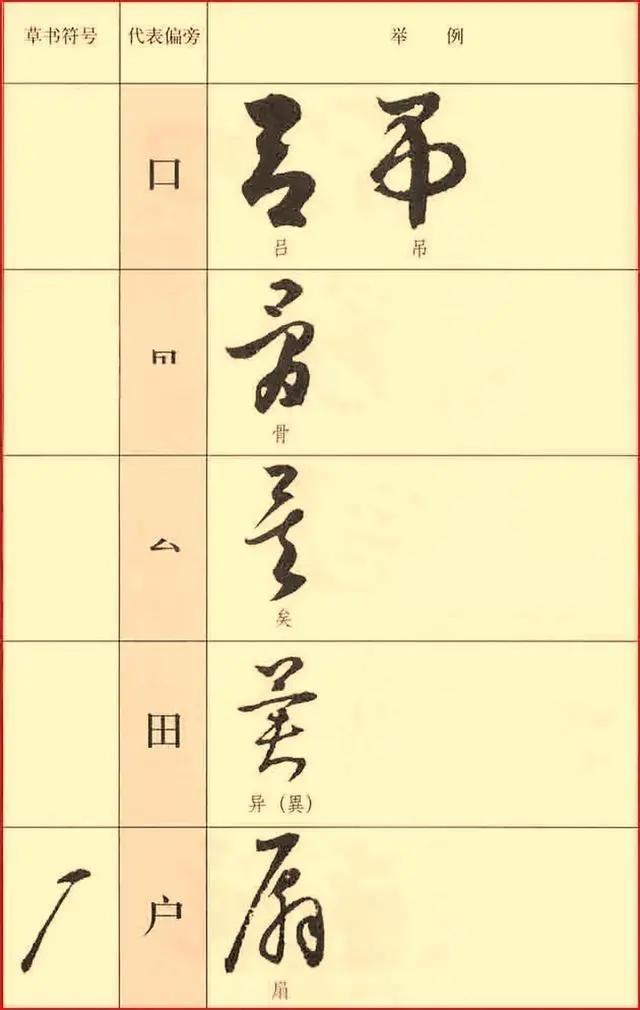 草书符号 代表偏旁 举例
口
吕 吊
骨
厶
矣
田
异（異）
户
扇